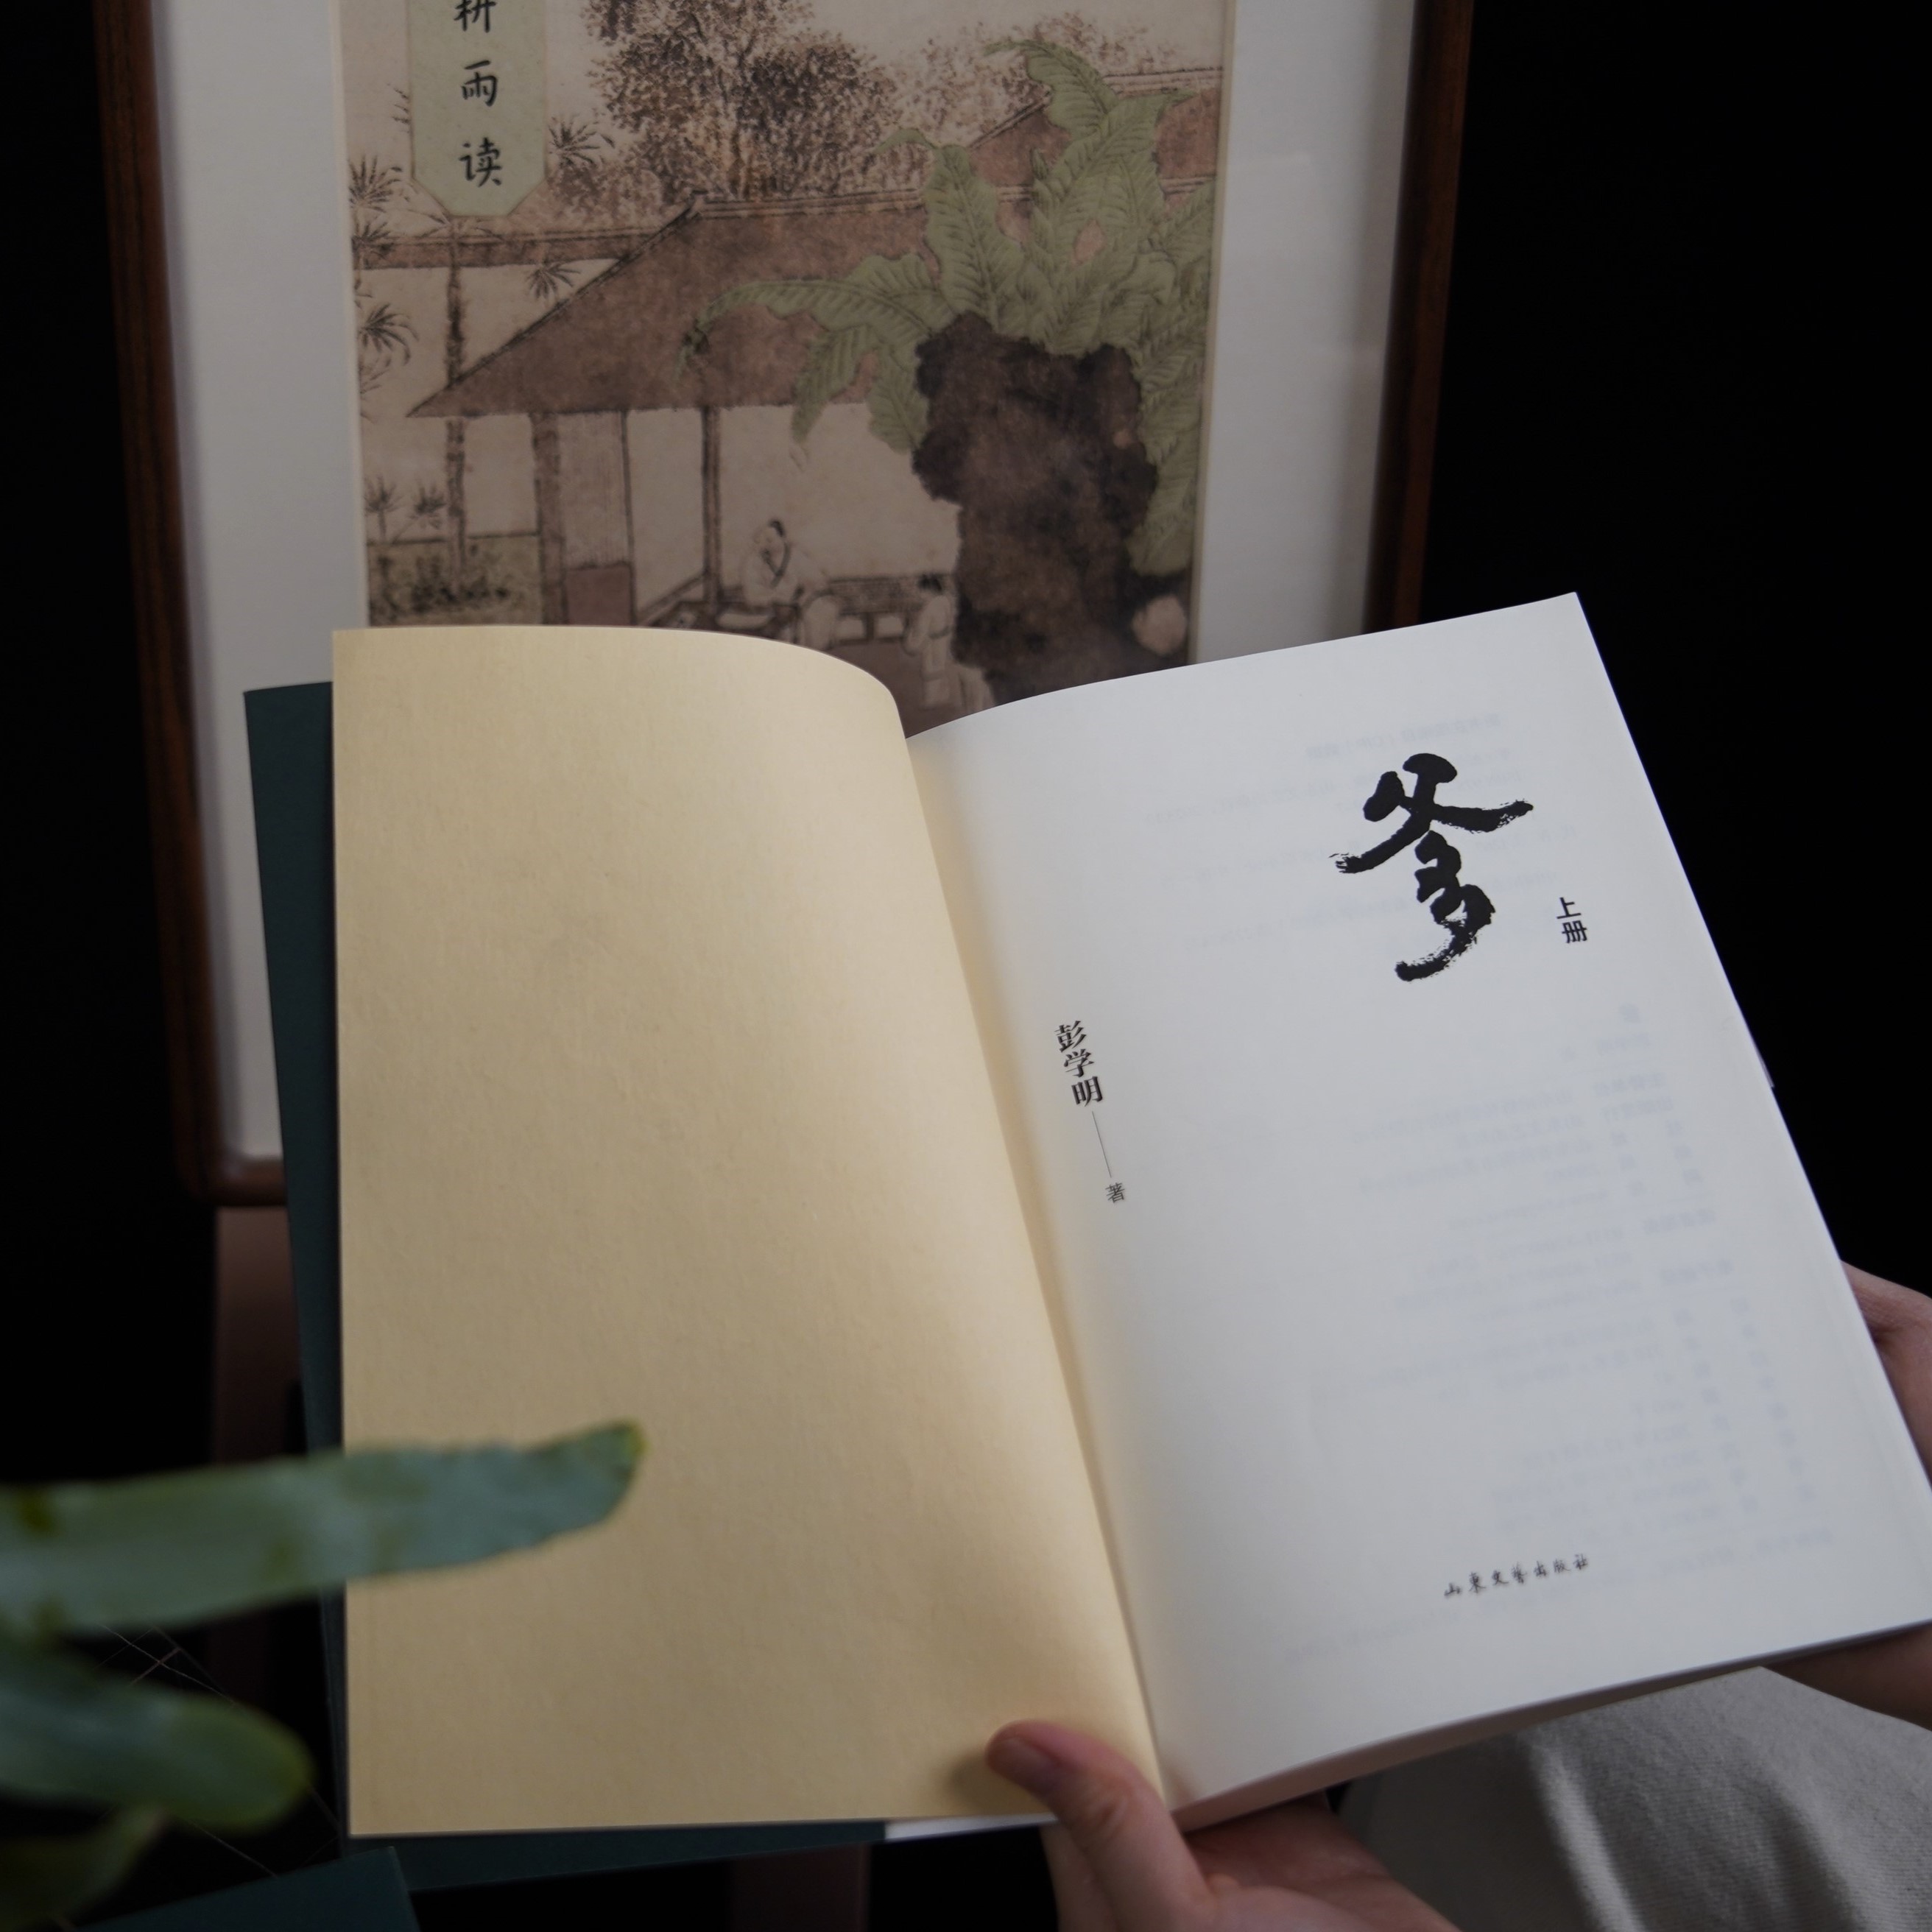 耕雨读
爹
上册
彭学明
著
山东文艺出版社